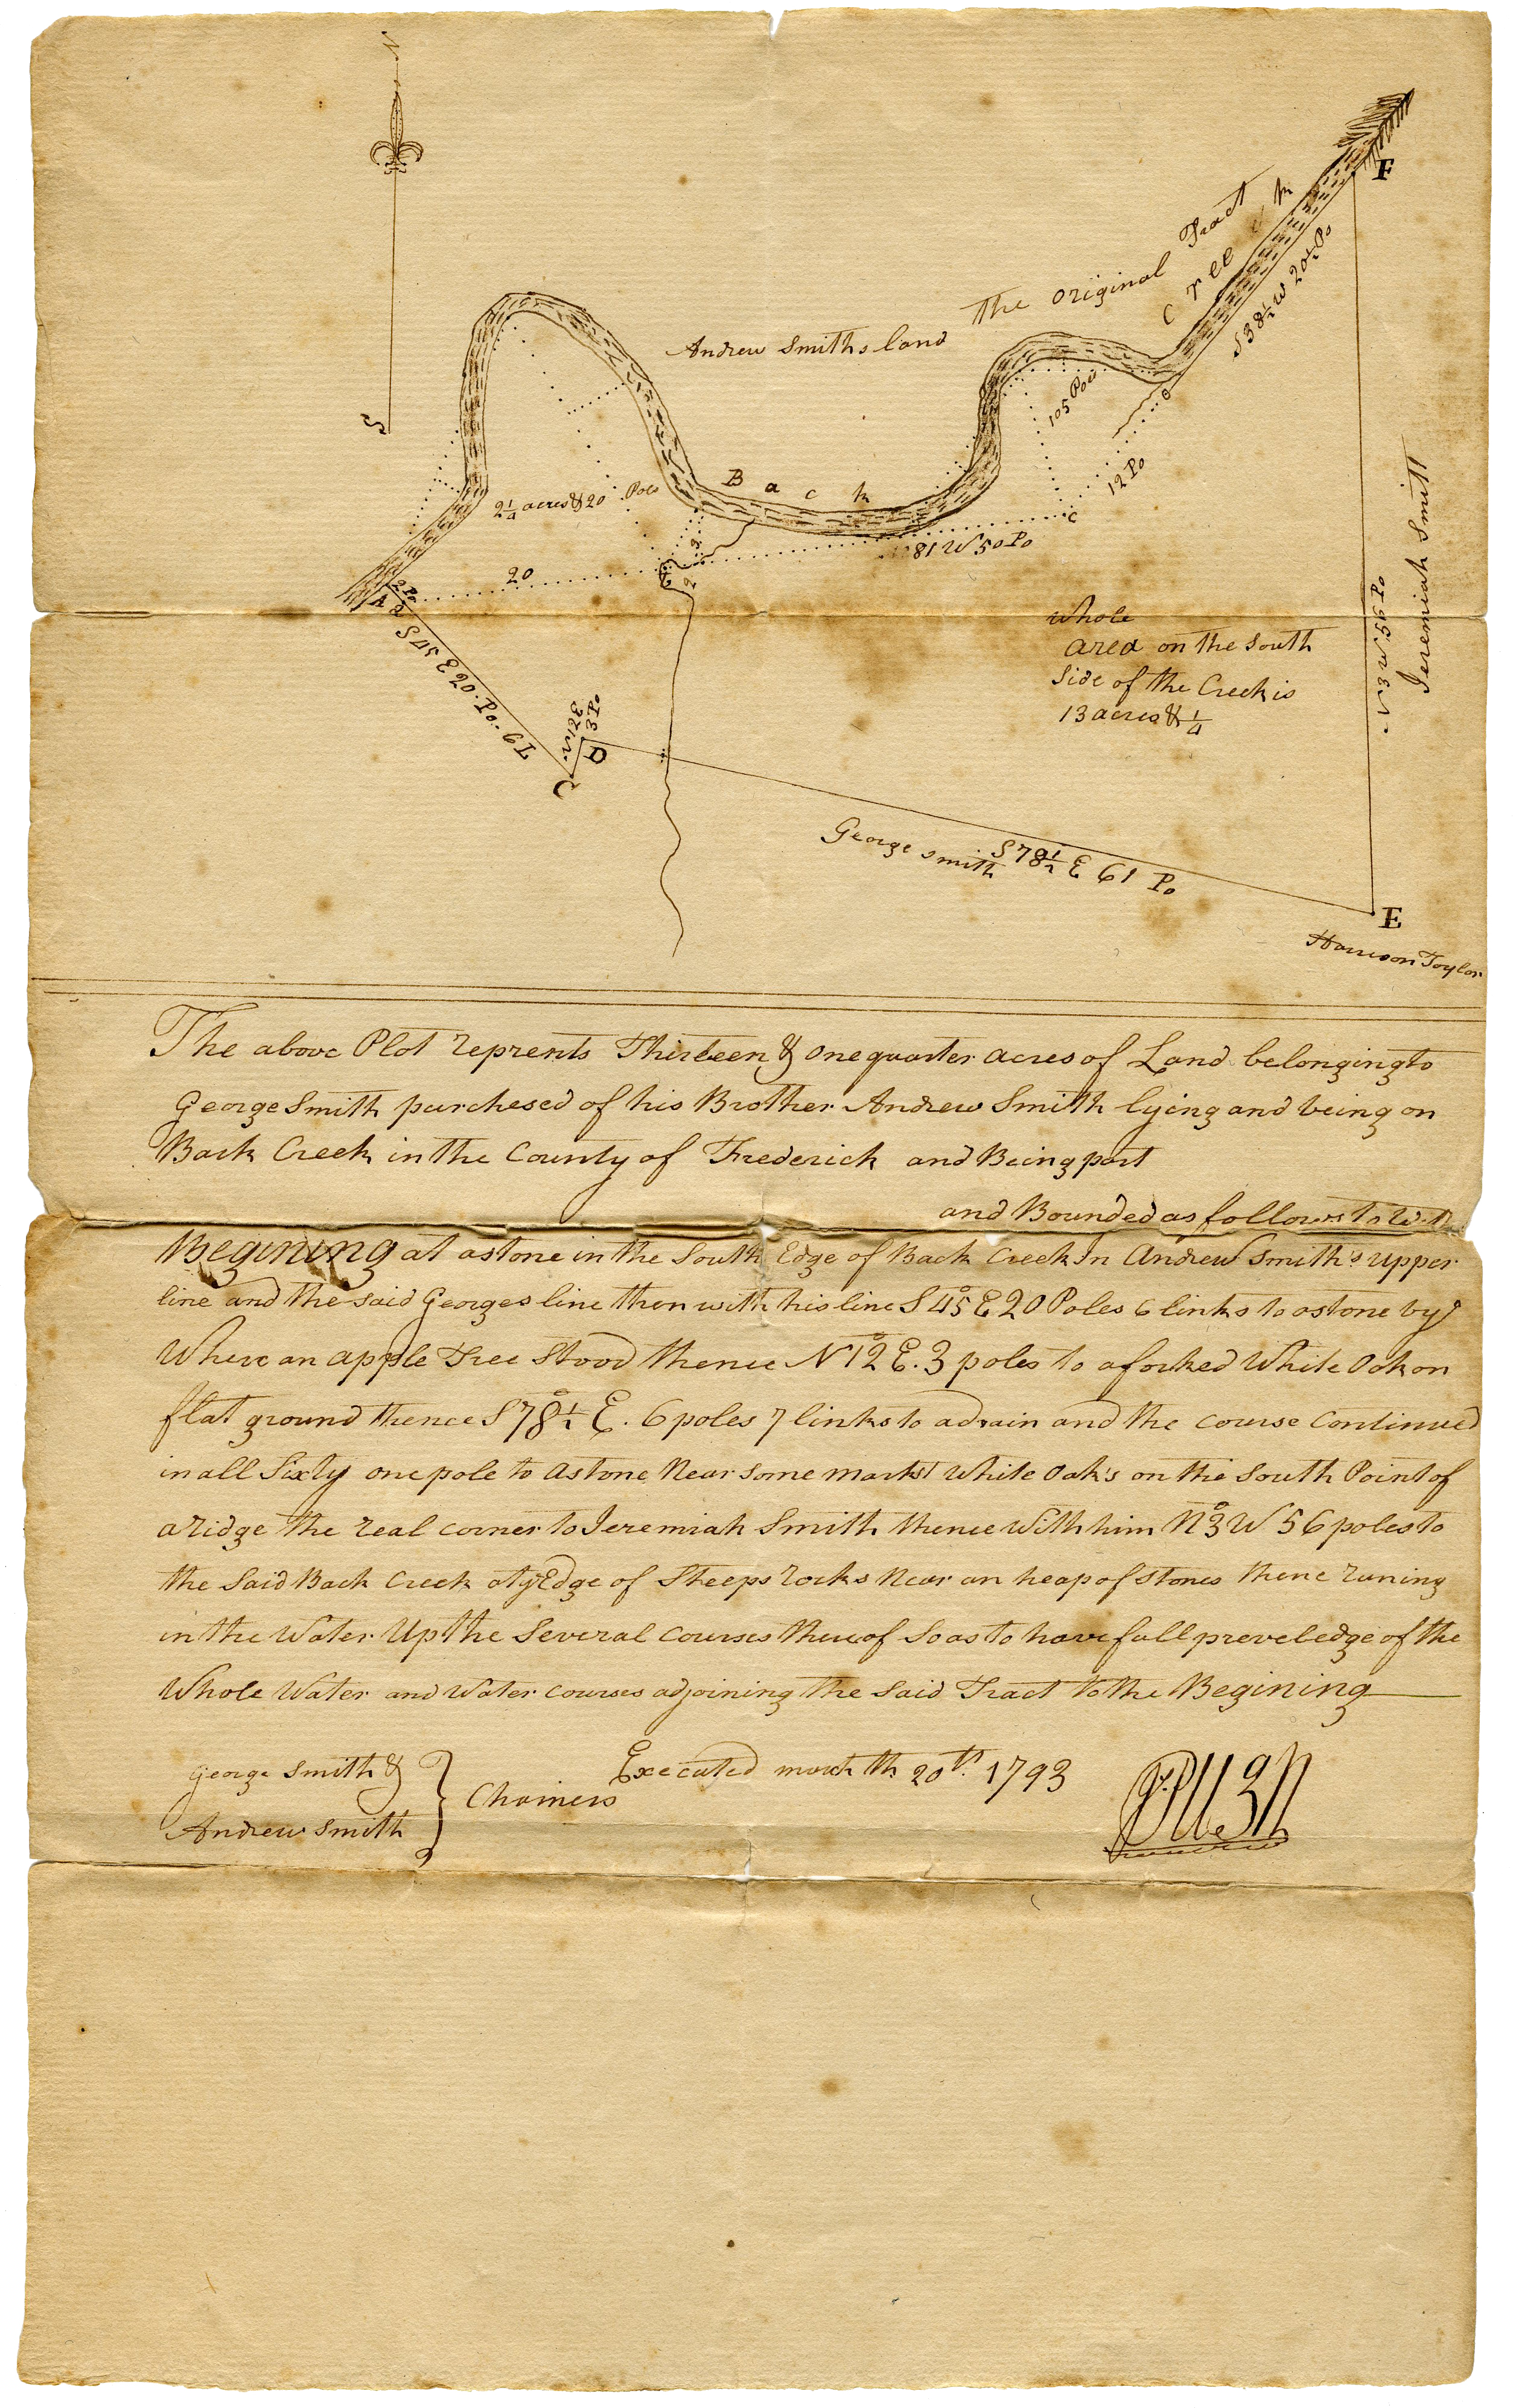 N
F
The original Tract
Creek
S 38½ W 20½ Po
Andrew Smiths land
S
105 Poles
12 Po
Back
2¼ acres & 20 Poles
C
81 W 50 Po
20
2 Po
A
S 45 E 20 Po - 6 L
Whole
area on the South
Side of the Creek is
13 acres & ¼
N 3 W 56 Po
Jeremiah Smith
N 12 E
3 Po
D
C
George Smith
S 78½ E 61 Po
E
Harrison Taylor
The above Plot reprents Thirteen & one quarter acres of Land belonging to
George Smith purchesed of his Brother Andrew Smith lying and being on
Back Creek in the County of Frederick and Being part
and Bounded as follows to Wit
Begining at a stone in the South Edge of Back Creek In Andrew Smith's upper
line and the said Georges line then with his line S 45° E 20 Poles 6 links to a stone by
Where an apple Tree Stood thence N 12° E. 3 poles to a forked White Oak on
flat ground thence S 78½° E. 6 poles 7 links to a drain and the course Continued
in all Sixty one pole to a stone Near some markt White Oak's on the South Point of
a ridge the real corner to Jeremiah Smith thence With him N 3° W 56 poles to
the Said Back Creek at y Edge of Steeps rocks Near an heap of stones thence runing
in the Water Up the Several courses thereof So as to have full preveledge of the
Whole Water and Water courses adjoining the Said Tract to the Begining
George Smith &
Andrew Smith
Chainers
Executed march th 20th. 1793